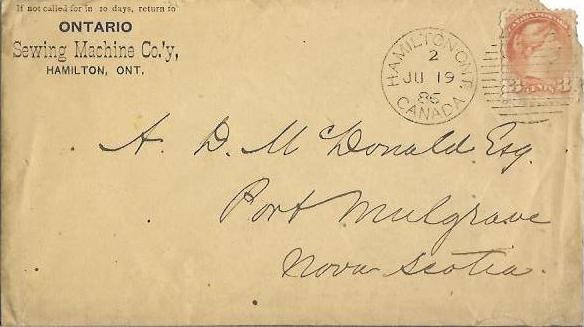 If not called for in 10 days, return to
ONTARIO
Sewing Machine Co.'y,
HAMILTON, ONT.
HAMILTON. ONT.
2
JU 19
86
CANADA
CANADA POSTAGE
3 CENTS 3
A. D. McDonald Esq.
Port Mulgrave
Nova Scotia.